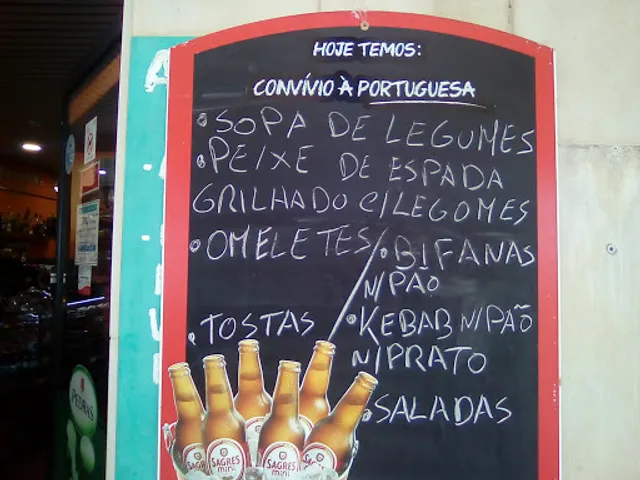 HOJE TEMOS:
CONVÍVIO À PORTUGUESA
• SOPA DE LEGUMES
• PEIXE DE ESPADA
GRILHADO C/LEGOMES
• OMELETES / • BIFANAS
N/PÃO
• TOSTAS • KEBAB N/PÃO
N/PRATO
• SALADAS
SAGRES
mini
SAGRES
mini
SAGRES
SAGRES
PEDRAS